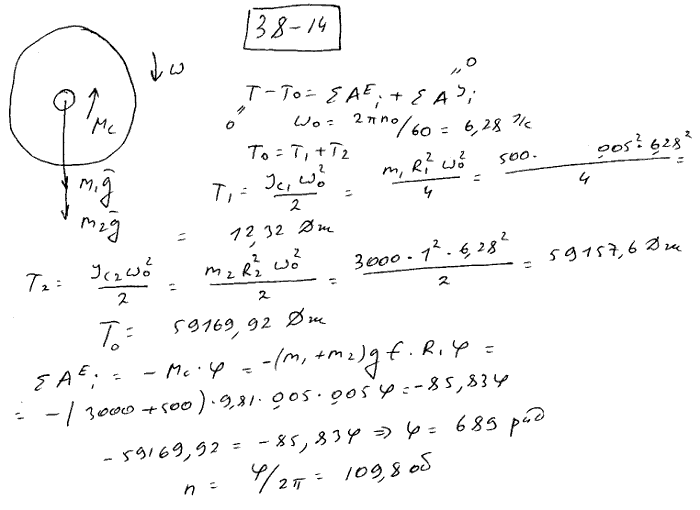 38-14
ω
Mc
m₁g̅
m₂g̅
T - T₀ = ΣAᴱᵢ + ΣAᴶᵢ
0 = = 0
ω₀ = 2πn₀/60 = 6,28 1/c
T₀ = T₁ + T₂
T₁ = Jc₁ω₀²/2 = m₁R₁²ω₀²/4 = 500·0,05²·6,28²/4 =
= 12,32 Дж
T₂ = Jc₂ω₀²/2 = m₂R₂²ω₀²/2 = 3000·1²·6,28²/2 = 59157,6 Дж
T₀ = 59169,92 Дж
ΣAᴱᵢ = -Mc·φ = -(m₁+m₂)gf·R₁φ =
= -(3000+500)·9,81·0,05·0,05φ = -85,83φ
-59169,92 = -85,83φ ⇒ φ = 689 рад
n = φ/2π = 109,8 об